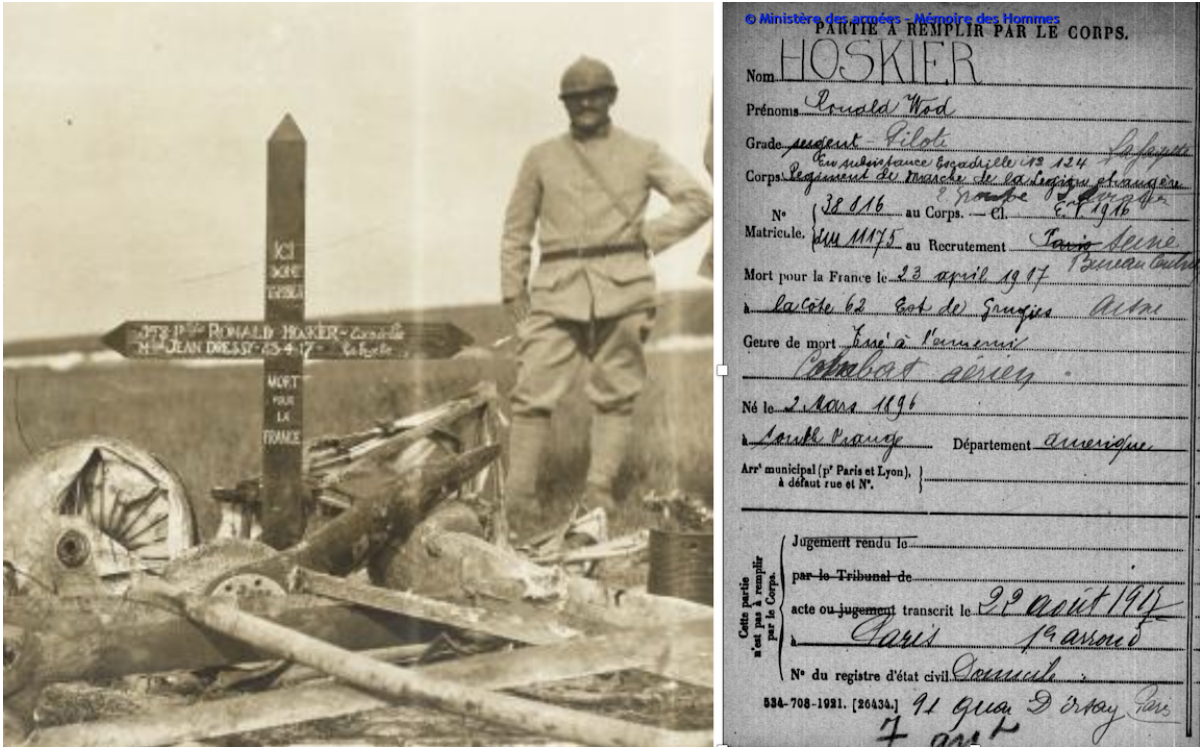 ICI
MORT
POUR
LA
FRANCE
RONALD HOSKIER - Escadrille
JEAN DRESSY - 23-4-17 - La Fayette
© Ministère des armées - Mémoire des Hommes
PARTIE À REMPLIR PAR LE CORPS.
Nom HOSKIER
Prénoms Ronald Wod
Grade sergent - Pilote Lafayette
En subsistance Escadrille No 124
Corps Regiment de marche de la Legion etrangère
No Matricule. 38 816 au Corps. — Cl. E.V. 1916
11175 au Recrutement Paris Seine
Bureau Central
Mort pour la France le 23 april 1917
à la cote 62 Est de Grugies Aisne
Genre de mort Tué à l'ennemi
Combat aérien
Né le 2 Mars 1896
à South Orange Département amerique
Arrt municipal (pr Paris et Lyon),
à défaut rue et No.
Cette partie
n'est pas à remplir
par le Corps.
Jugement rendu le
par le Tribunal de
acte ou jugement transcrit le 22 août 1917
à Paris 7e arrond
No du registre d'état civil Domicile :
534-708-1921. [26434.] 91 quai D'orsay Paris
7 art